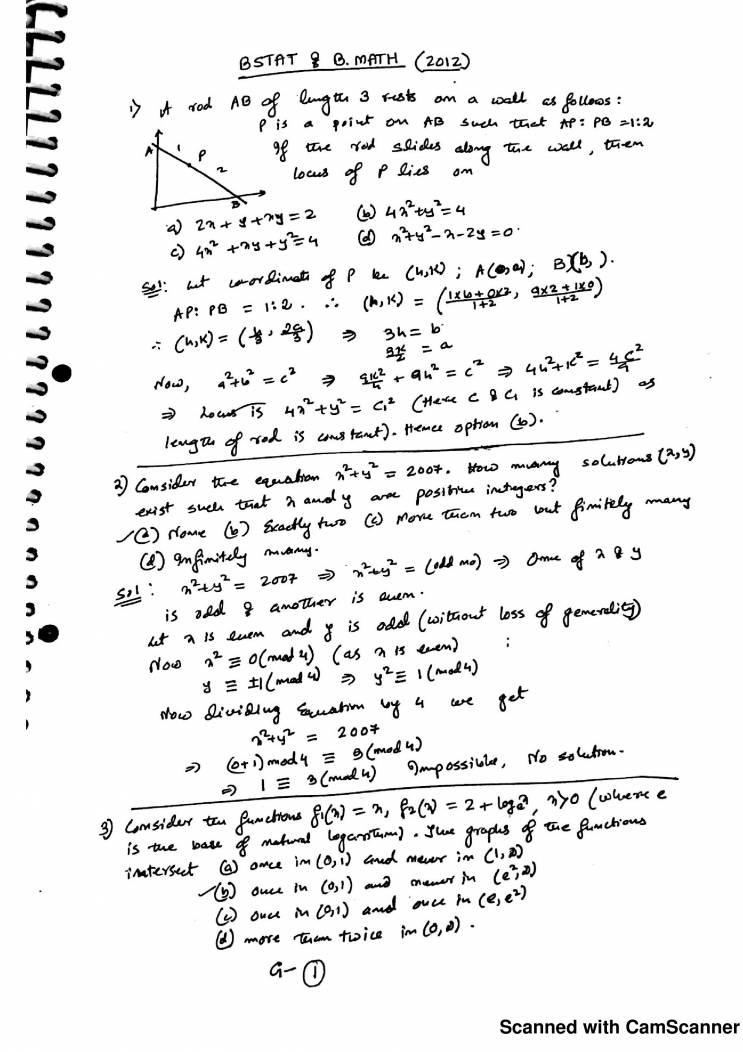 BSTAT & B.MATH (2012)
1) A rod AB of length 3 rests on a wall as follows:
P is a point on AB such that AP: PB = 1:2
If the rod slides along the wall, then
locus of P lies on
A 1 P 2 B
a) 2x + y + xy = 2 (b) 4x²+y²=4
c) 4x² + xy + y² = 4 (d) x²+y²-x-2y=0.
Sol: Let coordinate of P be (h,k) ; A(0,a); B(b, ).
AP: PB = 1:2. ∴ (h,k) = (1xb+0x2/1+2, ax2+1x0/1+2)
∴ (h,k) = (b/3, 2a/3) ⇒ 3h = b
3k/2 = a
Now, a²+b² = c² ⇒ 9k²/4 + 9h² = c² ⇒ 4h²+k² = 4c²/9
⇒ Locus is 4x²+y² = c₁² (Here c & c₁ is constant) as
length of rod is constant). Hence option (b).
2) Consider the equation x²+y² = 2007. How many solutions (x,y)
exist such that x and y are positive integers?
(a) None (b) Exactly two (c) More than two but finitely many
(d) Infinitely many.
Sol: x²+y² = 2007 ⇒ x²+y² = (odd no) ⇒ One of x & y
is odd & another is even.
Let x is even and y is odd (without loss of generality)
Now x² ≡ 0(mod 4) (as x is even)
y ≡ ±1(mod 4) ⇒ y² ≡ 1(mod 4)
Now dividing equation by 4 we get
x²+y² = 2007
⇒ (0+1) mod 4 ≡ 3(mod 4)
⇒ 1 ≡ 3(mod 4) Impossible, No solution.
3) Consider the functions f₁(x) = x, f₂(x) = 2 + logₑx, x>0 (where e
is the base of natural logarithm). The graphs of the functions
intersect (a) once in (0,1) and never in (1,∞)
(b) once in (0,1) and never in (e²,∞)
(c) once in (0,1) and once in (e, e²)
(d) more than twice in (0,∞).
G- 1
Scanned with CamScanner